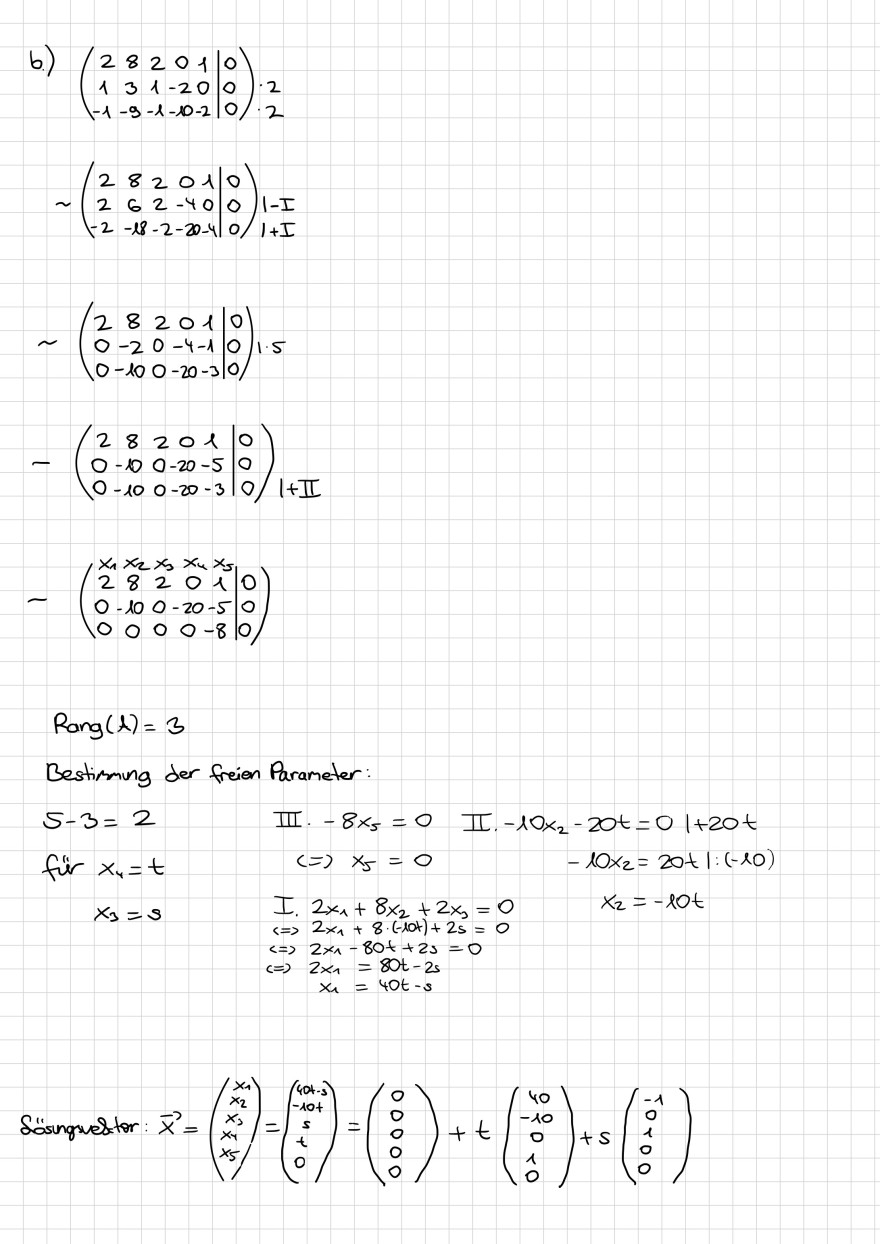 b.) 2 8 2 0 1 | 0
1 3 1 -2 0 | 0 · 2
-1 -9 -1 -10 -2 | 0 · 2
~ 2 8 2 0 1 | 0
2 6 2 -4 0 | 0 | -I
-2 -18 -2 -20 -4 | 0 | +I
~ 2 8 2 0 1 | 0
0 -2 0 -4 -1 | 0 | · 5
0 -10 0 -20 -3 | 0
~ 2 8 2 0 1 | 0
0 -10 0 -20 -5 | 0
0 -10 0 -20 -3 | 0 | +II
x₁ x₂ x₃ x₄ x₅
~ 2 8 2 0 1 | 0
0 -10 0 -20 -5 | 0
0 0 0 0 -8 | 0
Rang(A) = 3
Bestimmung der freien Parameter:
5-3 = 2
für x₄ = t
x₃ = s
III. -8x₅ = 0
<=> x₅ = 0
II. -10x₂ - 20t = 0 | +20t
-10x₂ = 20t | : (-10)
x₂ = -10t
I. 2x₁ + 8x₂ + 2x₃ = 0
<=> 2x₁ + 8·(-10t) + 2s = 0
<=> 2x₁ - 80t + 2s = 0
<=> 2x₁ = 80t - 2s
x₁ = 40t - s
Lösungsvektor: x⃗ = (x₁ x₂ x₃ x₄ x₅) = (40t-s -10t s t 0) = (0 0 0 0 0) + t (40 -10 0 1 0) + s (-1 0 1 0 0)